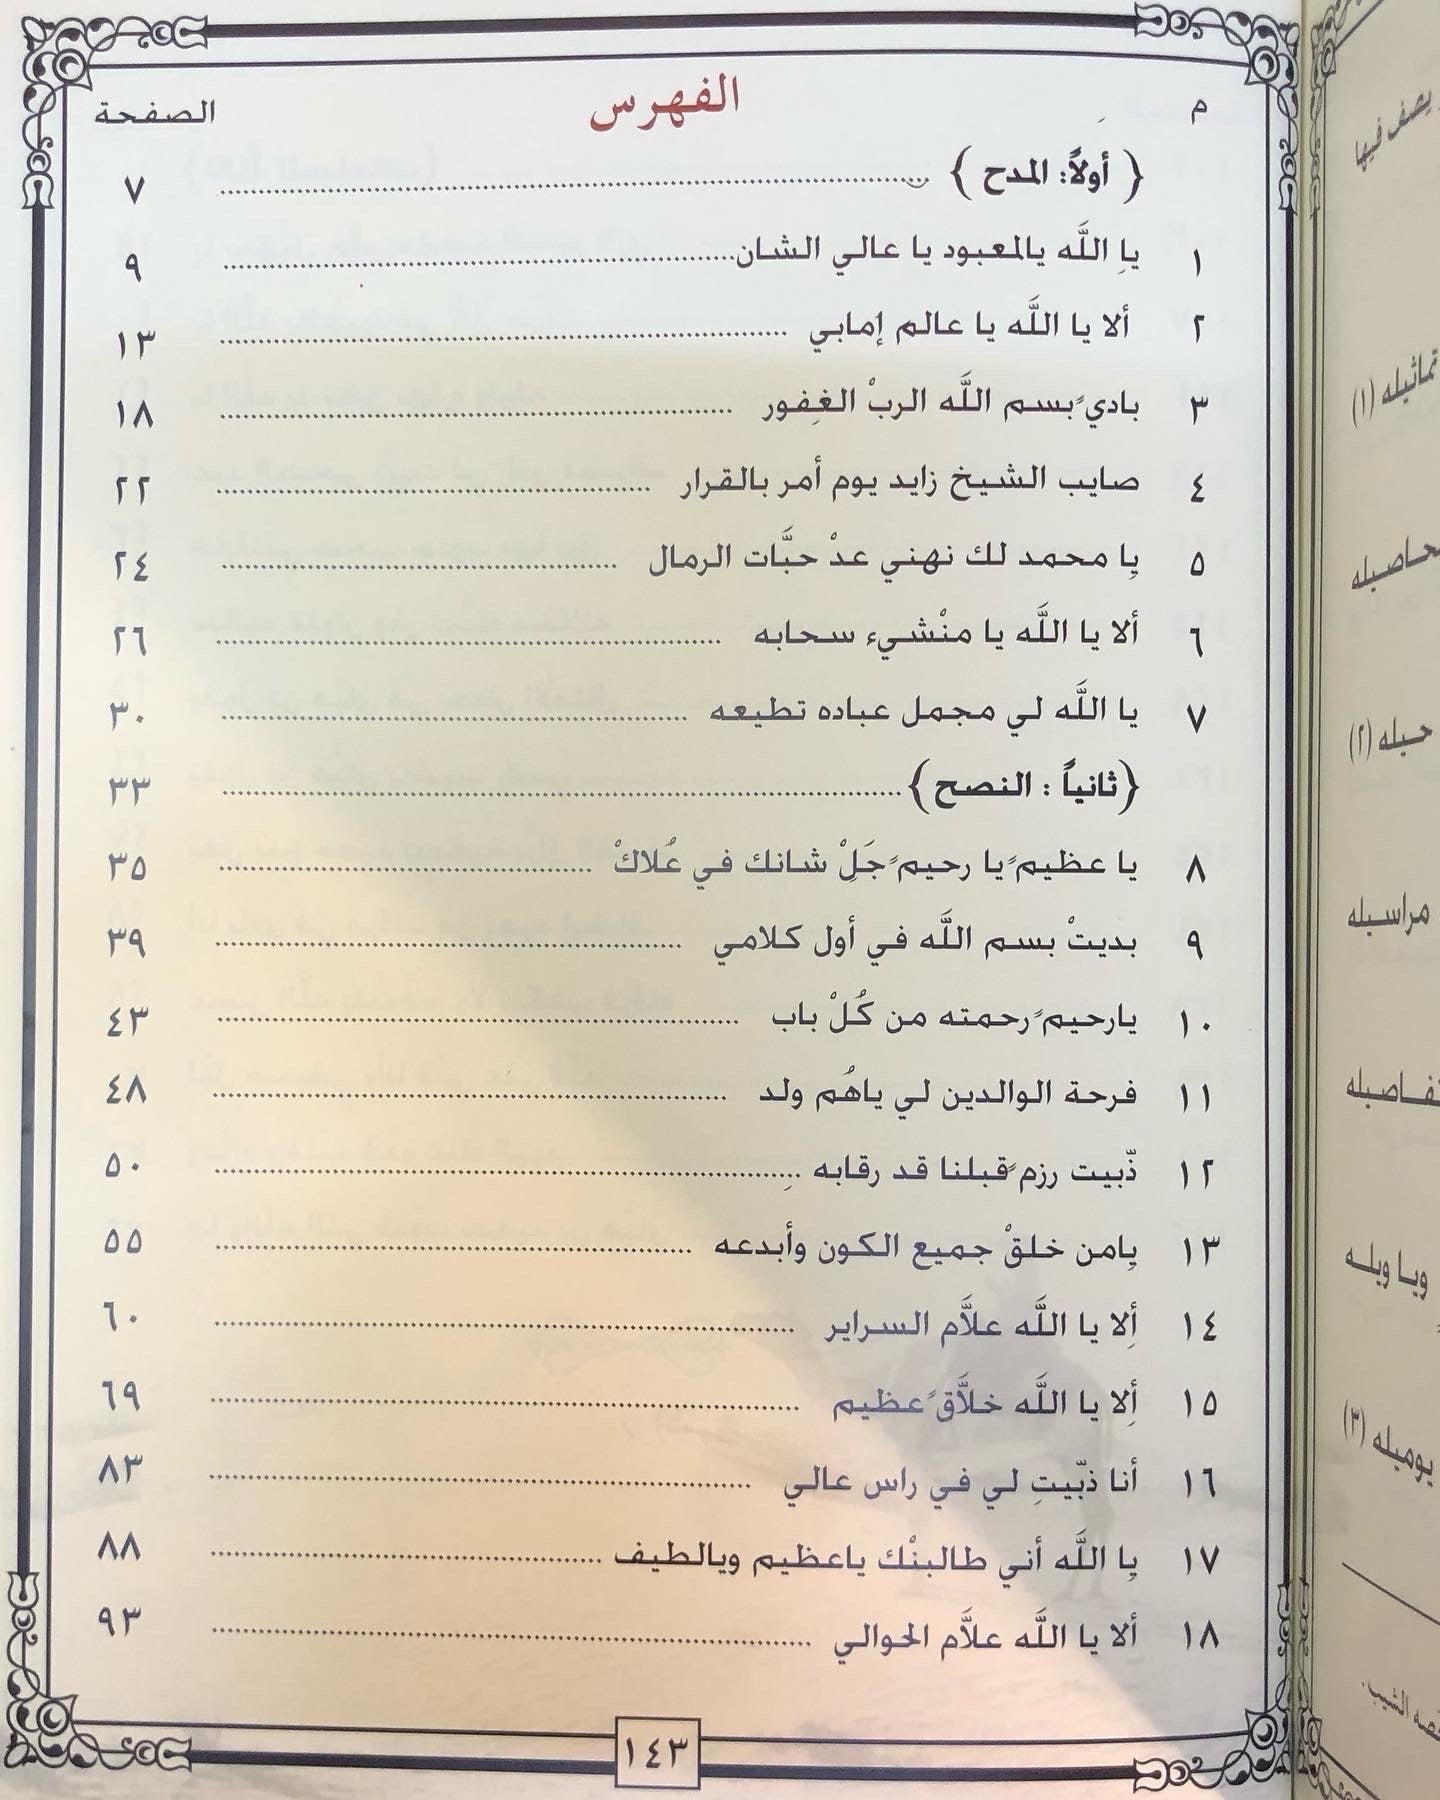 م الفهرس الصفحة
﴿ أولاً: المدح ﴾ ........ ٧
١ يا اللَّه يالمعبود يا عالي الشان ........ ٩
٢ ألا يا اللَّه يا عالم إمابي ........ ١٣
٣ بادي بسم اللَّه الربْ الغِفور ........ ١٨
٤ صايب الشيخ زايد يوم أمر بالقرار ........ ٢٢
٥ يا محمد لك نهني عدْ حبَّات الرمال ........ ٢٤
٦ ألا يا اللَّه يا منْشيء سحابه ........ ٢٦
٧ يا اللَّه لي مجمل عباده تطيعه ........ ٣٠
﴿ثانياً : النصح﴾ ........ ٣٣
٨ يا عظيمٍ يا رحيمٍ جَلْ شانك في عُلاكْ ........ ٣٥
٩ بديتْ بسم اللَّه في أول كلامي ........ ٣٩
١٠ يارحيمٍ رحمته من كُلْ باب ........ ٤٣
١١ فرحة الوالدين لي ياهُم ولد ........ ٤٨
١٢ ذّبيت رزمٍ قبلنا قد رقابه ........ ٥٠
١٣ يامن خلقْ جميع الكون وأبدعه ........ ٥٥
١٤ ألا يا اللَّه علاَّم السراير ........ ٦٠
١٥ ألا يا اللَّه خلاَّقٍ عظيم ........ ٦٩
١٦ أنا ذبّيتِ لي في راس عالي ........ ٨٣
١٧ يا اللَّه أني طالبنْك ياعظيم ويالطيف ........ ٨٨
١٨ ألا يا اللَّه علاَّم الحوالي ........ ٩٣
١٤٣
يصف فيها
تماثيله (١)
حيله (٢)
مراسيله
ويا ويله
يوميله (٣)
الشيب.